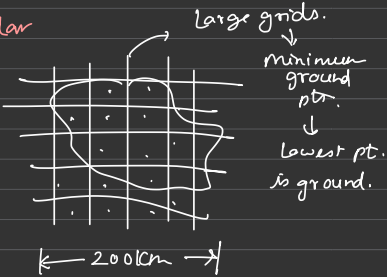 Large grids.
↓
minimum
ground
pts.
↓
Lowest pt.
is ground.
200km